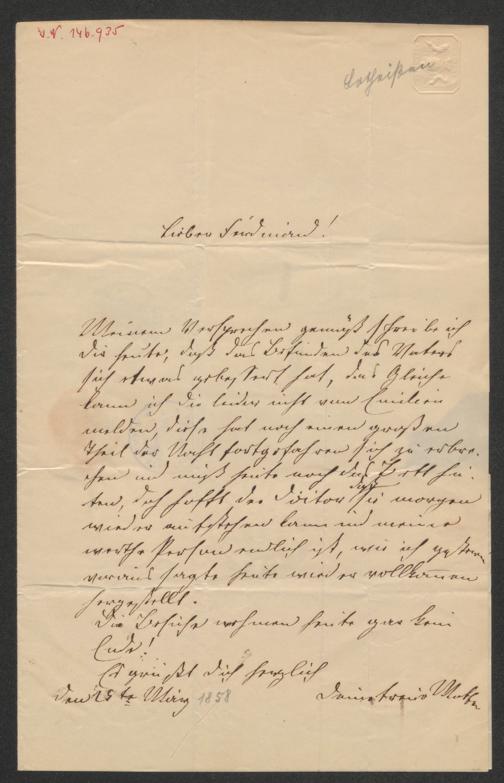 V.N. 146.935
Lotheißen
Lieber Ferdinand!
Meinem Versprechen gemäß schreibe ich
Dir heute, daß das Befinden des Vaters
sich etwas gebessert hat, das Gleiche
kann ich Dir leider nicht von Emilien
melden, diese hat noch einen großen
Theil der Nacht fortgefahren sich zu erbre-
chen und muß heute noch das Bett hü-
ten, doch hofft der Doctor daß sie morgen
wieder aufstehen kann und meine
werthe Person endlich ist, wie ich gestern
voraus sagte heute wieder vollkommen
hergestellt.
Die Besuche nehmen heute gar kein
Ende!
Es grüßt Dich herzlich
Den 25te März 1858 Deine treue Mutter